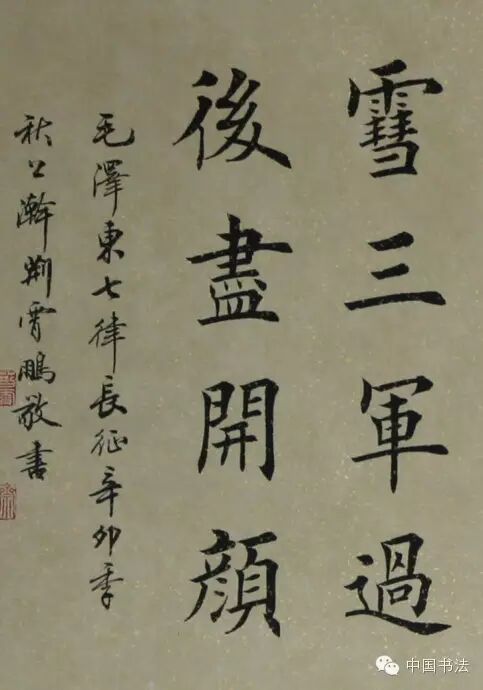 雪三軍過
後盡開顏
毛澤東七律長征辛卯季
秋公瀚荊霄鵬敬書
中国书法